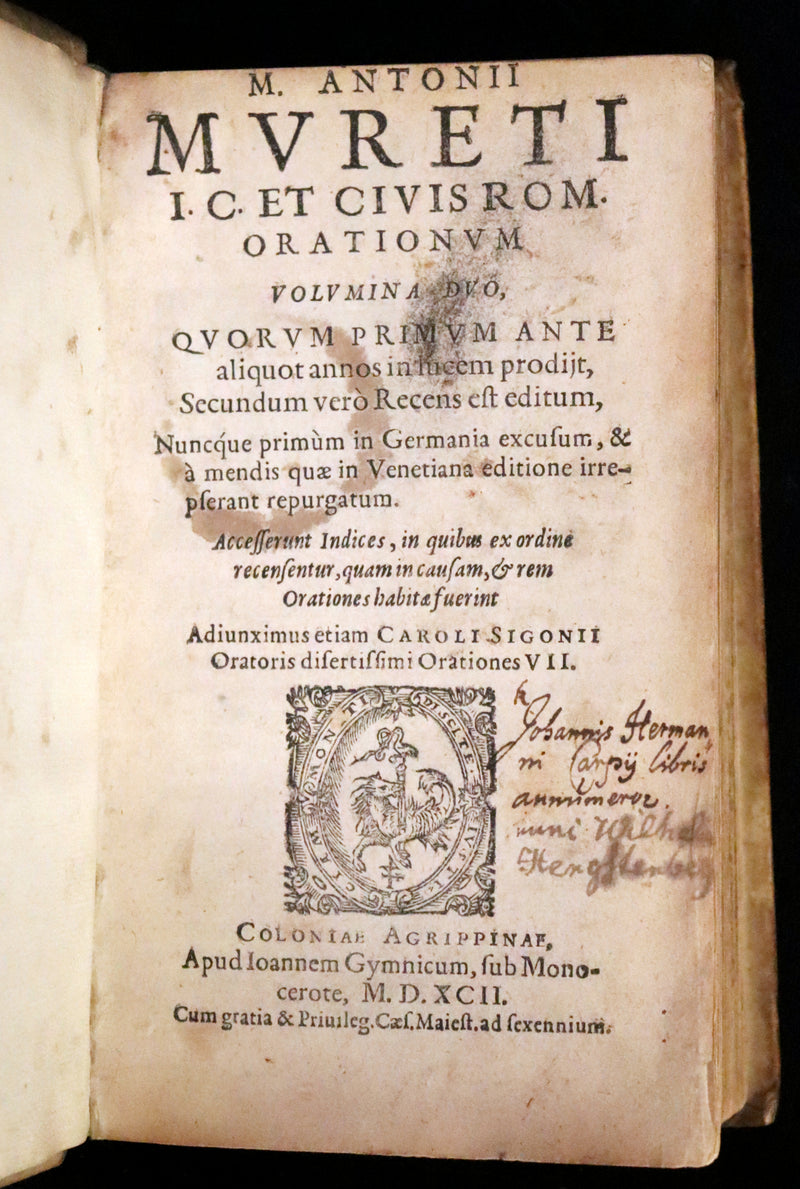 M. ANTONII
MVRETI
I. C. ET CIVIS ROM.
ORATIONVM
VOLVMINA DVO,
QVORVM PRIMVM ANTE
aliquot annos in lucem prodijt,
Secundum verò Recens eſt editum,
Nuncq́ue primùm in Germania excuſum, &
à mendis quæ in Venetiana editione irre-
pſerant repurgatum.
Acceſſerunt Indices, in quibus ex ordine
recenſentur, quam in cauſam, & rem
Orationes habitæ fuerint
Adiunximus etiam CAROLI SIGONII
Oratoris diſertiſſimi Orationes VII.
DISCITE IVSTI
MON TI
Johannis Herman
ni Carpij libris
annumeror.
nunc Wilhel
Hengstenberg
COLONIAE AGRIPPINAE,
Apud Ioannem Gymnicum, ſub Mono-
cerote, M. D. XCII.
Cum gratia & Priuileg. Cæſ. Maieſt. ad ſexennium.